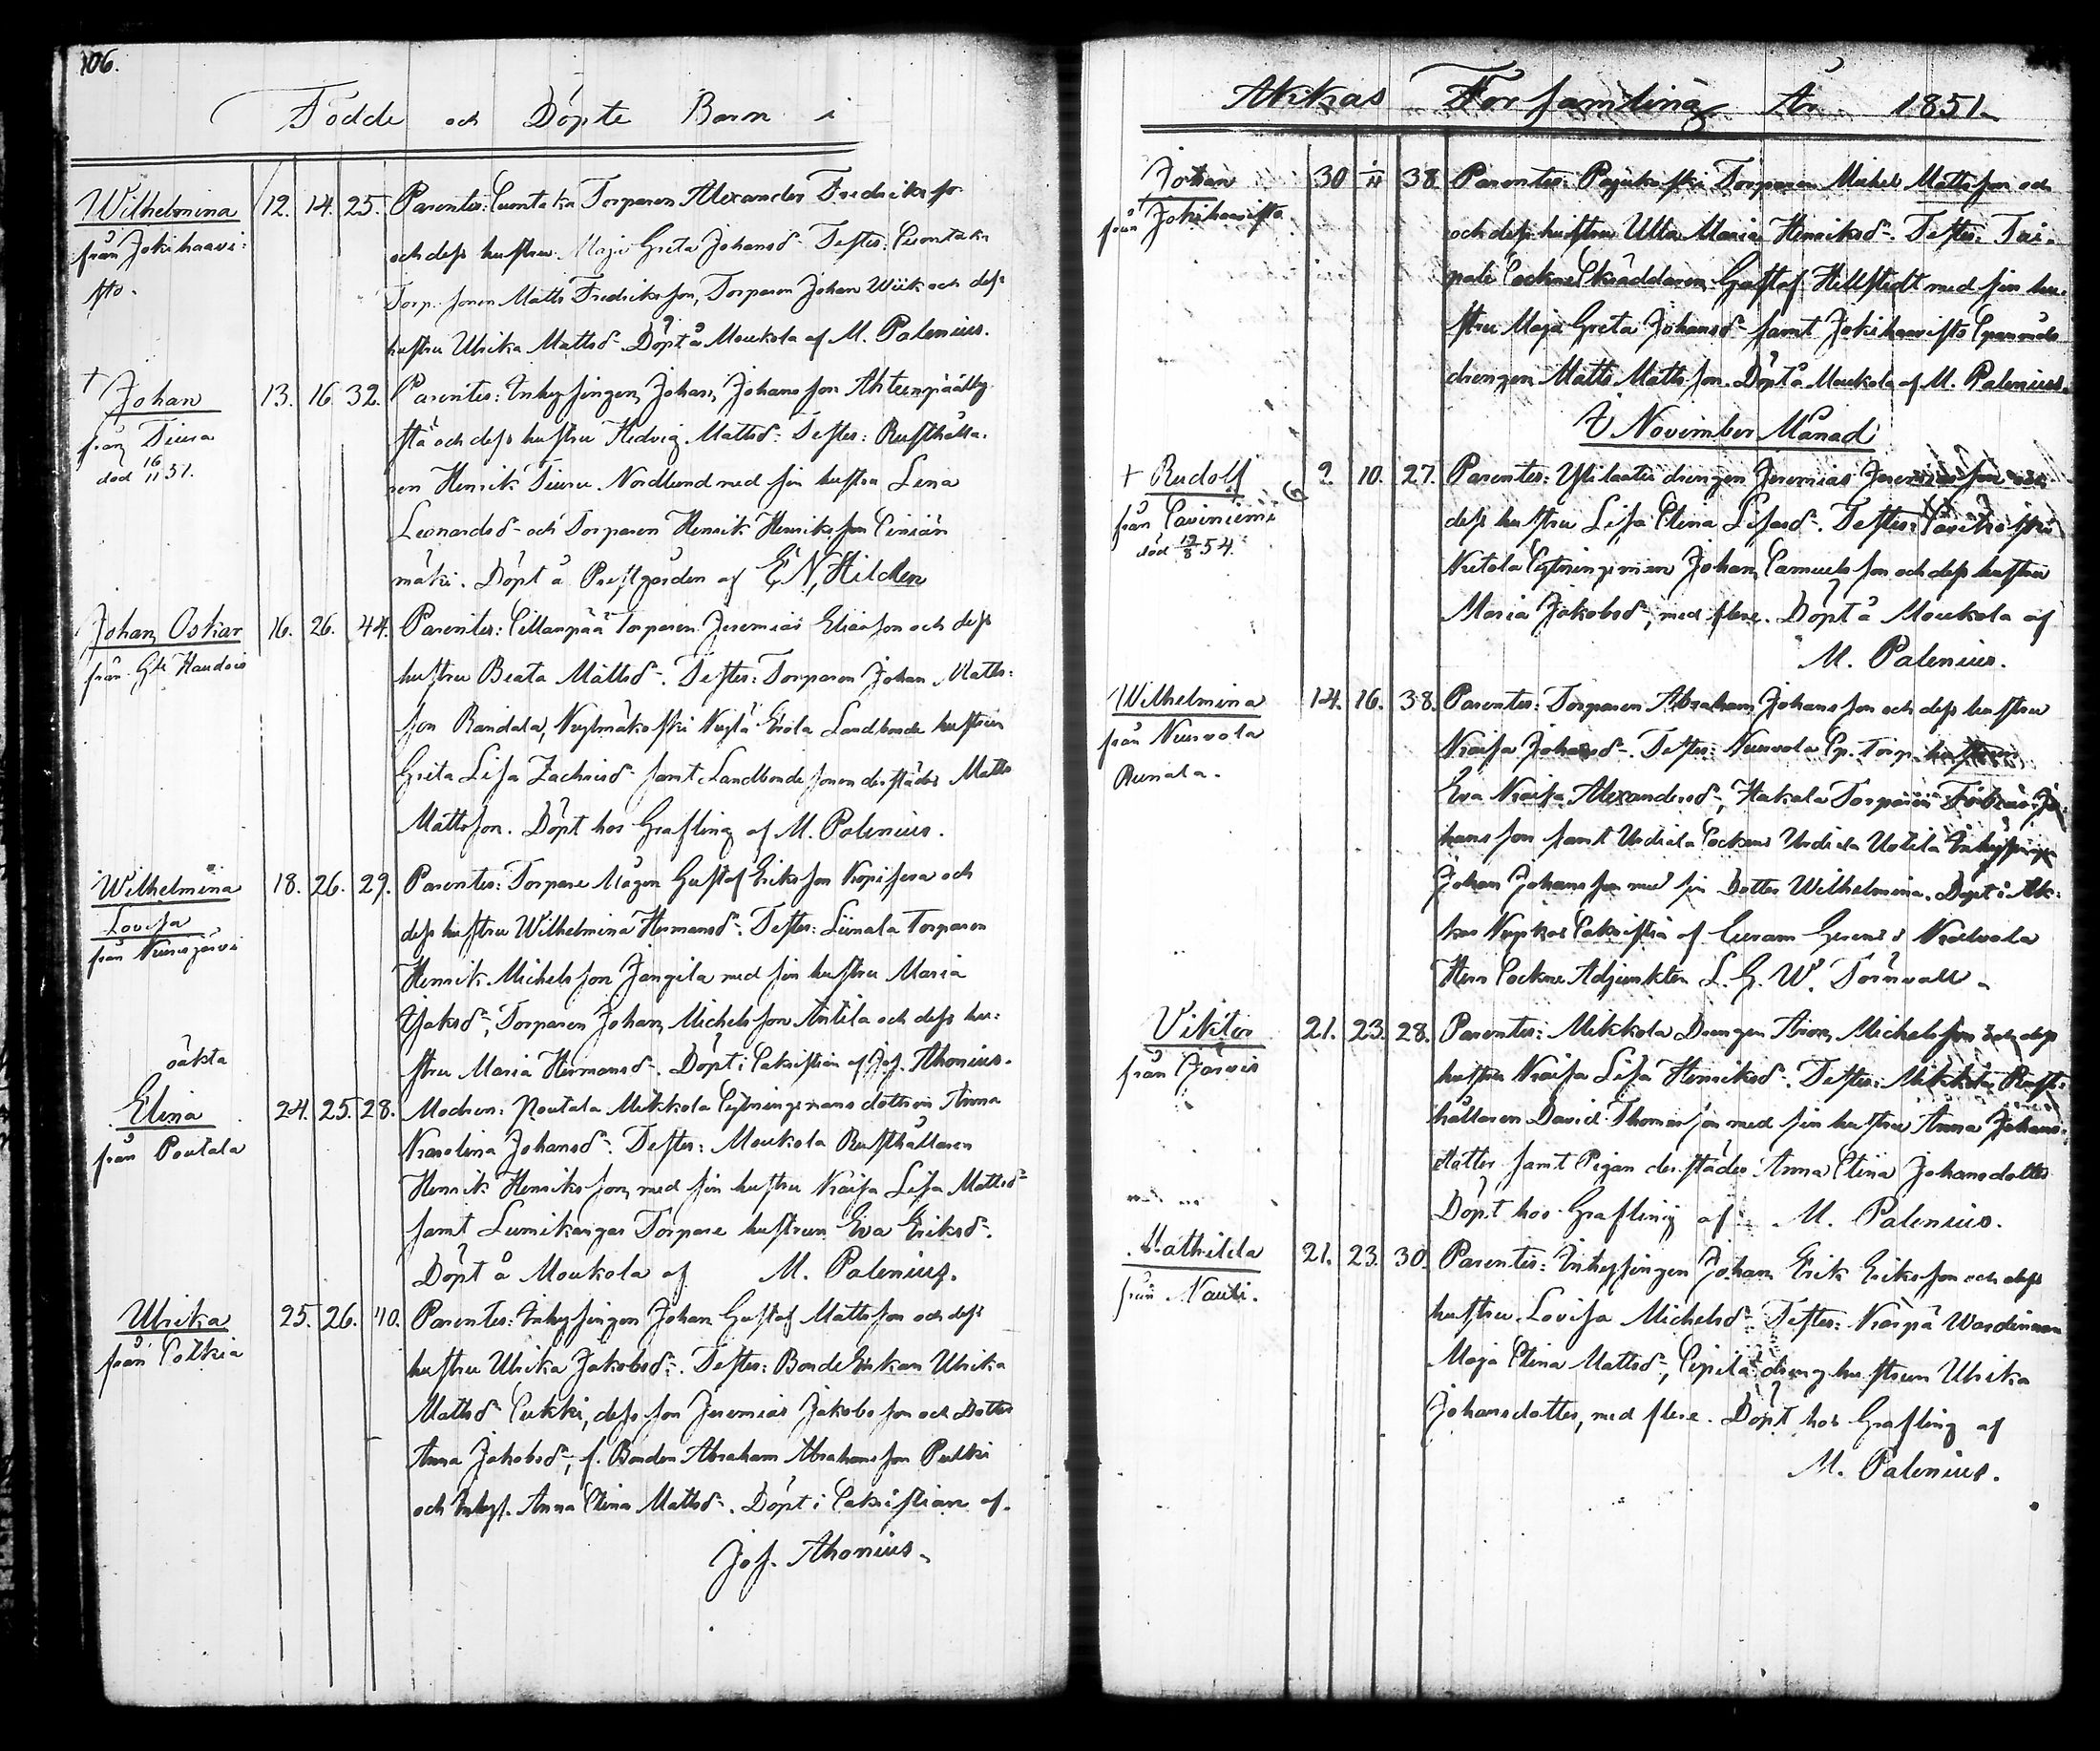 106.
Födde och Döpte Barn i
Wilhelmina
från Jokihaavi:
sto.
12. 14. 25. Parenter: Torparen Alexander Fredriksso
och dess hustru Maja Greta Johansd. Testes:
Torp. sonen Matts Fredriksson, Torparen Johan Wiik och dess
hustru Ulrika Mattsd. Döpt å Moukola af M. Palenius.
† Johan
från
död 16/11 51.
13. 16. 32. Parentes: Inhysingen Johan Johansson
och dess hustru Hedvig Mattsd. Testes: Rusthålla.
ren Henrik Nordlund med sin hustru Lena
Leonardsd. och Torparen Henrik Henriksson
mäki. Döpt å Prestgården af E. N. Hilden
Johan Oskar
från
16. 26. 44. Parentes: Sillanpää torparen Jeremias Eliasson och dess
hustru Beata Mattsd. Testes: Torparen Johan Matts:
son Randala, Landbonde hustrun
Greta Lisa Zachrisd. samt Landbonde sonen derstädes Matts
Mattsson. Döpt hos Grafling af M. Palenius.
Wilhelmina
Lovisa
från
18. 26. 29. Parentes: Torpare Mågen Gustaf Eriksson och
dess hustru Wilhelmina Hermansd. Testes: Torparen
Henrik Michelsson Jangila med sin hustru Maria
Torparen Johan Michelsson Antila och dess hu:
stru Maria Hermansd. Döpt i Sakristian af Jos. Ahonius.
oäkta
Elina
från Poutala
24. 25. 28. Modren: Poutala Mikkola Sytningsmans dottren Anna
Karolina Johansd. Testes: Moukola Rusthållaren
Henrik Henriksson med sin hustru Kaisa Lisa Mattsd.
samt Torpare hustrun Eva Eriksd.
Döpt å Moukola af M. Palenius.
Ulrika
från
25. 26. 40. Parentes: Inhysingen Johan Gustaf Mattsson och dess
hustru Ulrika Jakobsd. Testes: Bonde Enkan Ulrika
Mattsd. dess son Jeremias Jakobsson och Dotter
Anna Jakobsd., f. Bonden Abraham Abrahamsson
och Inhys. Anna Stina Mattsd. Döpt i Sakristian af.
Jos. Ahonius.
Akkas Församling År 1851.
Johan
från Jokihaavisto
30 1/11 38. Parentes: Torparen Mickel Mattsson och
och dess hustru Ulla Maria Henriksd. Testes: Tai-
pale Sockne Skräddaren Gustaf Hellstedt med sin hu:
stru Maja Greta Johansd. samt Jokihaavisto
drengen Matts Mattsson. Döpt å Moukola af M. Palenius.
I November Månad
† Rudolf
från Saviniemi
död 19/8 54.
9. 10. 27. Parentes: drengen Jeremias Jeremiasson och
dess hustru Lisa Stina Testes:
Sytningsman Johan Samuelsson och dess hustru
Maria Jakobsd., med flere. Döpt å Moukola af
M. Palenius.
Wilhelmina
från
14. 16. 38. Parentes: Torparen Abraham Johansson och dess hustru
Kaisa Johansd. Testes: Torp. hustrun
Eva Kaisa Alexandersd., Hakala Torparen Jo
hansson samt Sockens
Johan Johansson med sin Dotter Wilhelmina. Döpt i Ak:
kas Kyrkas Sakristia af
Herr Sockne Adjunkten L. G. W. Törnvall.
Viktor
från Järvis
21. 23. 28. Parentes: Mikkola Drengen Michelsson och dess
hustru Kaisa Lisa Henriksd. Testes: Mikkola Rust:
hållaren David Thomasson med sin hustru Anna Johans:
dotter samt Pigan derstädes Anna Stina Johansdotter
Döpt hos Grafling af M. Palenius.
Mathilda
från Nauli.
21. 23. 30. Parentes: Inhysingen Johan Erik Eriksson och dess
hustru Lovisa Michelsd. Testes:
Maja Stina Mattsd., dreng hustrun Ulrika
Johansdotter, med flere. Döpt hos Grafling af
M. Palenius.